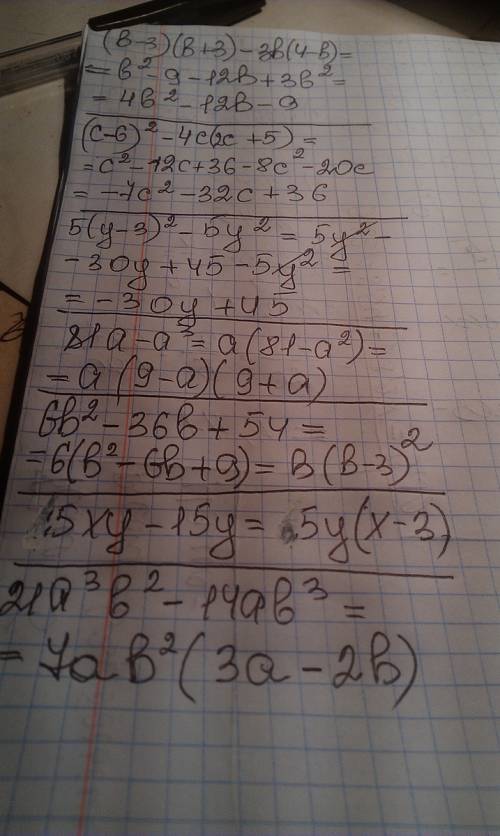 (в-3)(в+3)-3в(4-в)=
=в²-9-12в+3в²=
=4в²-12в-9
(с-6)²-4с(2с+5)=
=с²-12с+36-8с²-20с
=-7с²-32с+36
5(y-3)²-5y²=5y²-
-30y+45-5y²=
=-30y+45
81а-а³=а(81-а²)=
=а(9-а)(9+а)
6в²-36в+54=
=6(в²-6в+9)=в(в-3)²
5xy-15y=5y(x-3)
21а³в²-14ав³=
=7ав²(3а-2в)